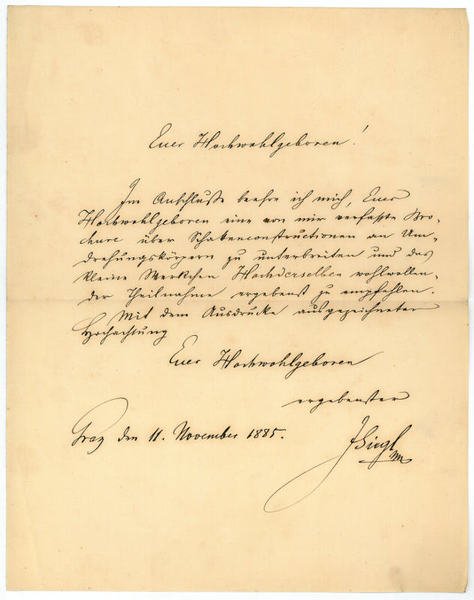 Euer Hochwohlgeboren!
Im Anschlusse beehre ich mich, Euer
Hochwohlgeboren eine von mir verfasste Bro-
chure über Schattenconstructionen an Um-
drehungskörpern zu unterbreiten und das
kleine Werkchen Hochderselben wohlwollen-
der Theilnahme ergebenst zu empfehlen.
Mit dem Ausdrucke ausgezeichneter
Hochachtung
Euer Hochwohlgeboren
ergebenster
Graz den 11. November 1885.